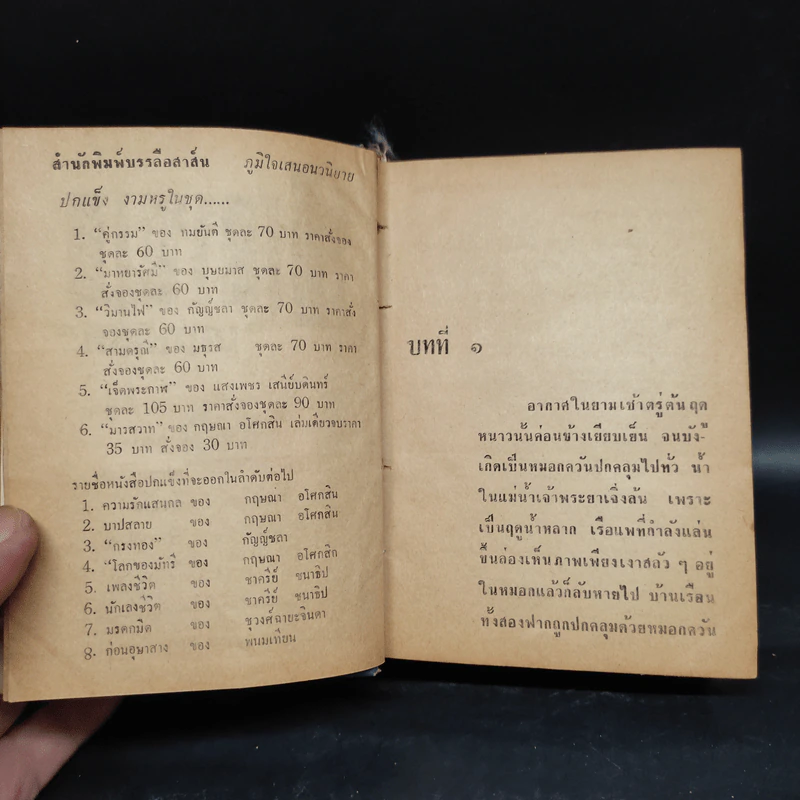 สำนักพิมพ์บรรลือสาส์น ภูมิใจเสนอนวนิยาย
ปกแข็ง งามหรูในชุด......
1. “คู่กรรม” ของ ทมยันตี ชุดละ 70 บาท ราคาสั่งจอง
ชุดละ 60 บาท
2. “มาหยารัศมี” ของ บุษยมาส ชุดละ 70 บาท ราคา
สั่งจองชุดละ 60 บาท
3. “วิมานไฟ” ของ กัญญ์ชลา ชุดละ 70 บาท ราคาสั่ง
จองชุดละ 60 บาท
4. “สามดรุณี” ของ มธุรส ชุดละ 70 บาท ราคา
สั่งจองชุดละ 60 บาท
5. “เจ็ดพระกาฬ” ของ แสงเพชร เสนีย์บดินทร์
ชุดละ 105 บาท ราคาสั่งจองชุดละ 90 บาท
6. “มารสวาท” ของ กฤษณา อโศกสิน เล่มเดียวจบราคา
35 บาท สั่งจอง 30 บาท
รายชื่อหนังสือปกแข็งที่จะออกในลำดับต่อไป
1. ความรักแสนกล ของ กฤษณา อโศกสิน
2. บาปสลาย ของ กฤษณา อโศกสิน
3. “กรงทอง” ของ กัญญ์ชลา
4. “โลกของมัทรี ของ กฤษณา อโศกสิก
5. เพลงชีวิต ของ ชาครีย์ ชนาธิป
6. นักเลงชีวิต ของ ชาครีย์ ชนาธิป
7. มรดกมืด ของ ชูวงศ์ ฉายะจินดา
8. ก่อนอุษาสาง ของ พนมเทียน
บทที่ ๑
อากาศในยามเช้าตรู่ต้นฤดู
หนาวนั้นค่อนข้างเยียบเย็น จนบัง-
เกิดเป็นหมอกควันปกคลุมไปทั่ว น้ำ
ในแม่น้ำเจ้าพระยาเจิ่งล้น เพราะ
เป็นฤดูน้ำหลาก เรือแพที่กำลังแล่น
ขึ้นล่องเห็นภาพเพียงเงาสลัว ๆ อยู่
ในหมอกแล้วก็ลับหายไป บ้านเรือน
ทั้งสองฟากถูกปกคลุมด้วยหมอกควัน